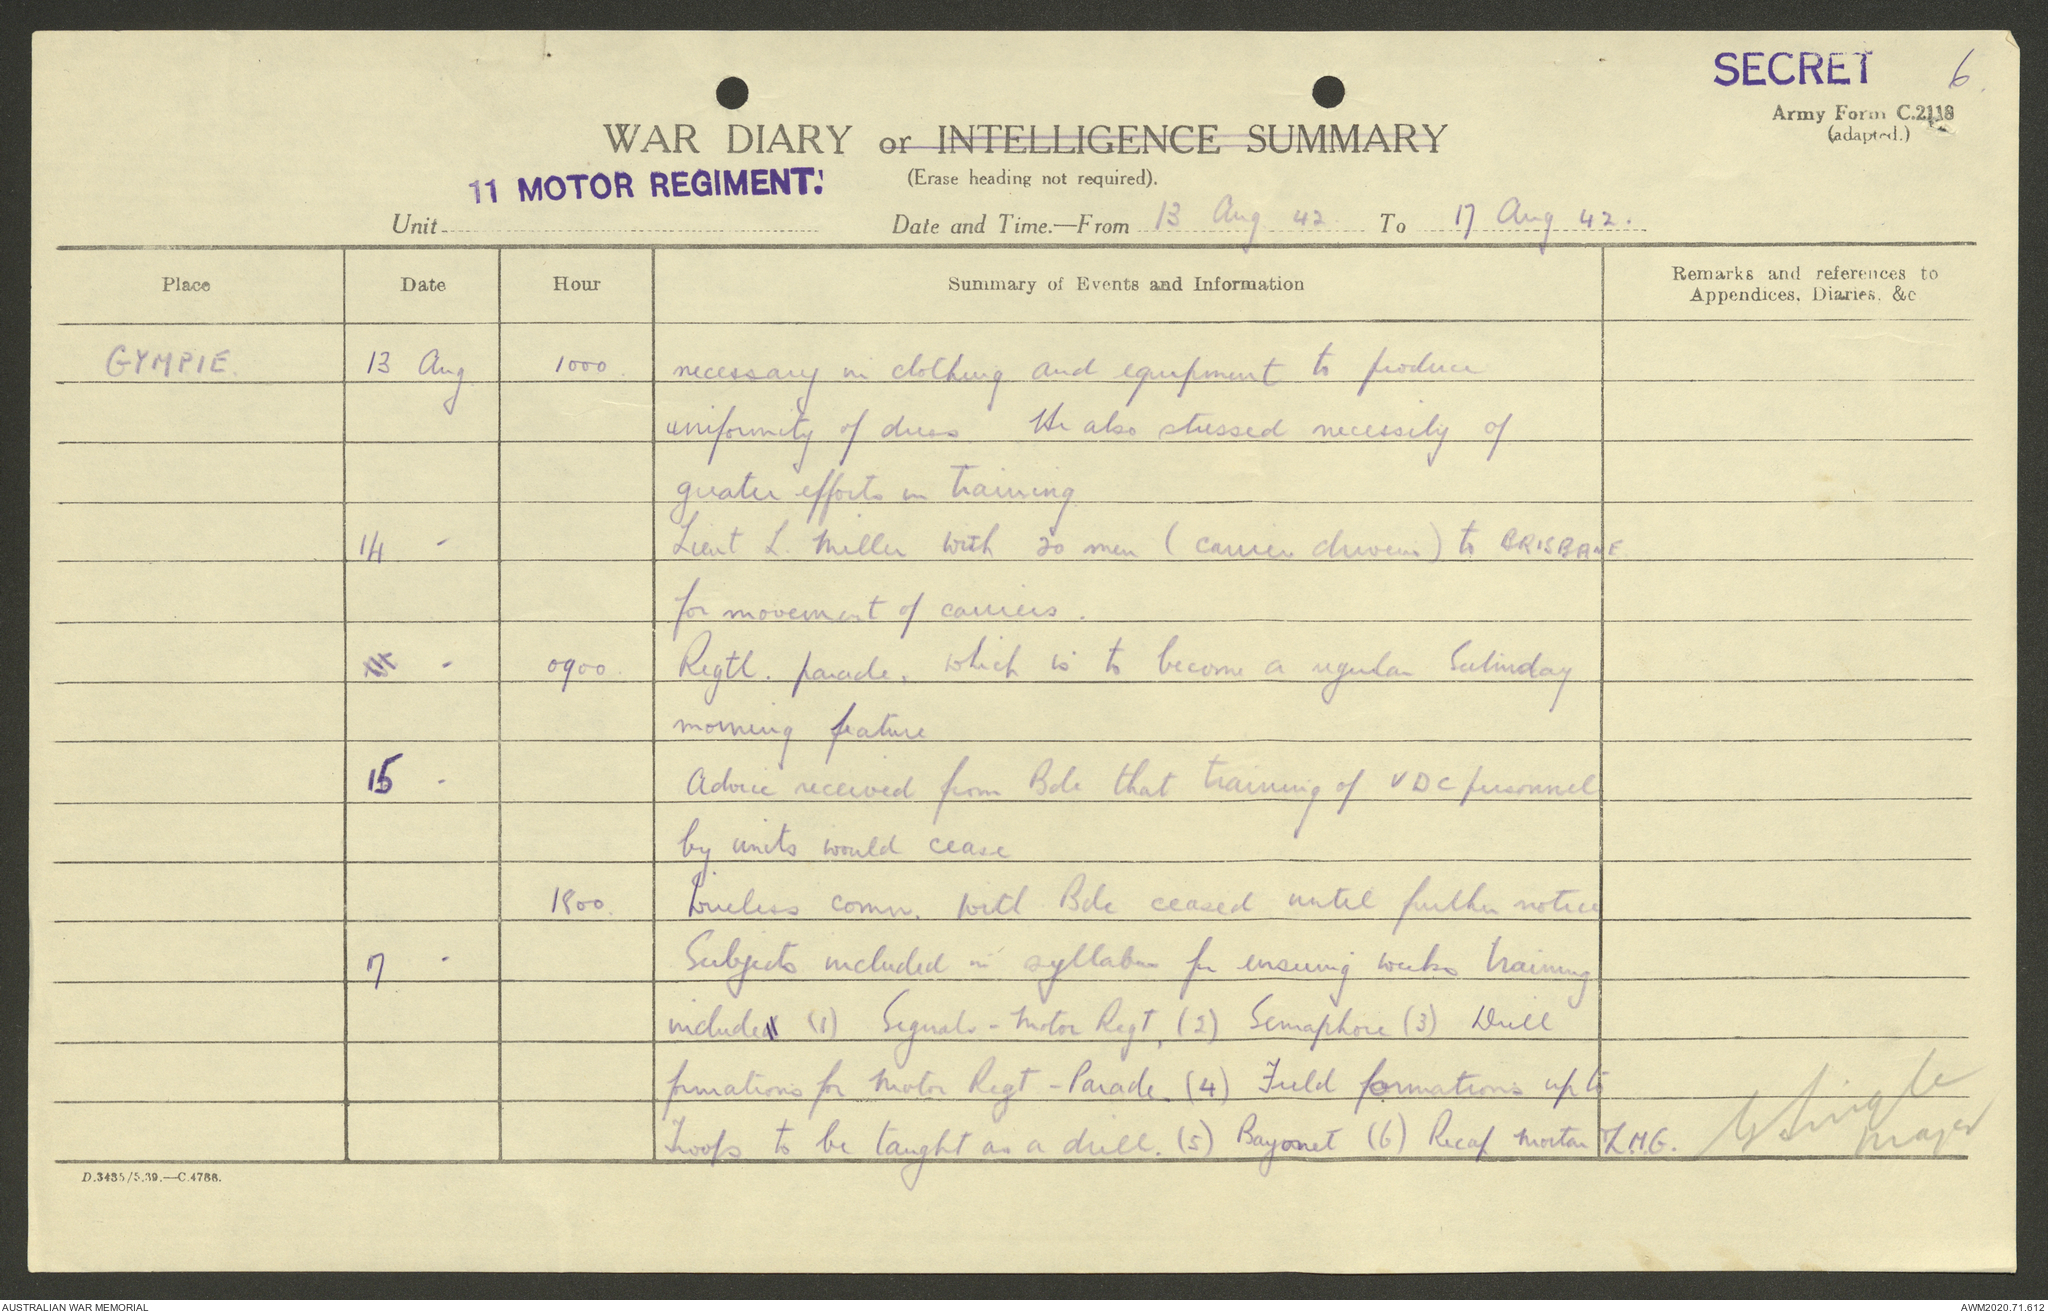 SECRET 6.
Army Form C.2118
(adapted.)
WAR DIARY or INTELLIGENCE SUMMARY
(Erase heading not required).
11 MOTOR REGIMENT.
Unit Date and Time.—From 13 Aug 42. To 17 Aug 42.
Place Date Hour Summary of Events and Information Remarks and references to
Appendices, Diaries, &c
GYMPIE. 13 Aug 1000. necessary in clothing and equipment to produce
uniformity of dress He also stressed necessity of
greater efforts in training
14 - Lieut L. Miller with 20 men (carrier drivers) to BRISBANE
for movement of carriers.
- 0900. Regtl. parade. which is to become a regular Saturday
morning feature
15 - Advice received from Bde that training of VDC personnel
by units would cease
1800. Wireless comn. with Bde ceased until further notice
17 - Subjects included in syllabus for ensuing weeks training
include (1) Signals - Motor Regt, (2) Semaphore (3) Drill
formations for Motor Regt - Parade. (4) Field formations up to
Troops to be taught as a drill. (5) Bayonet (6) Recap Mortar L.M.G.
Major
D.3485/5.39.—C.4788.
AUSTRALIAN WAR MEMORIAL AWM2020.71.612